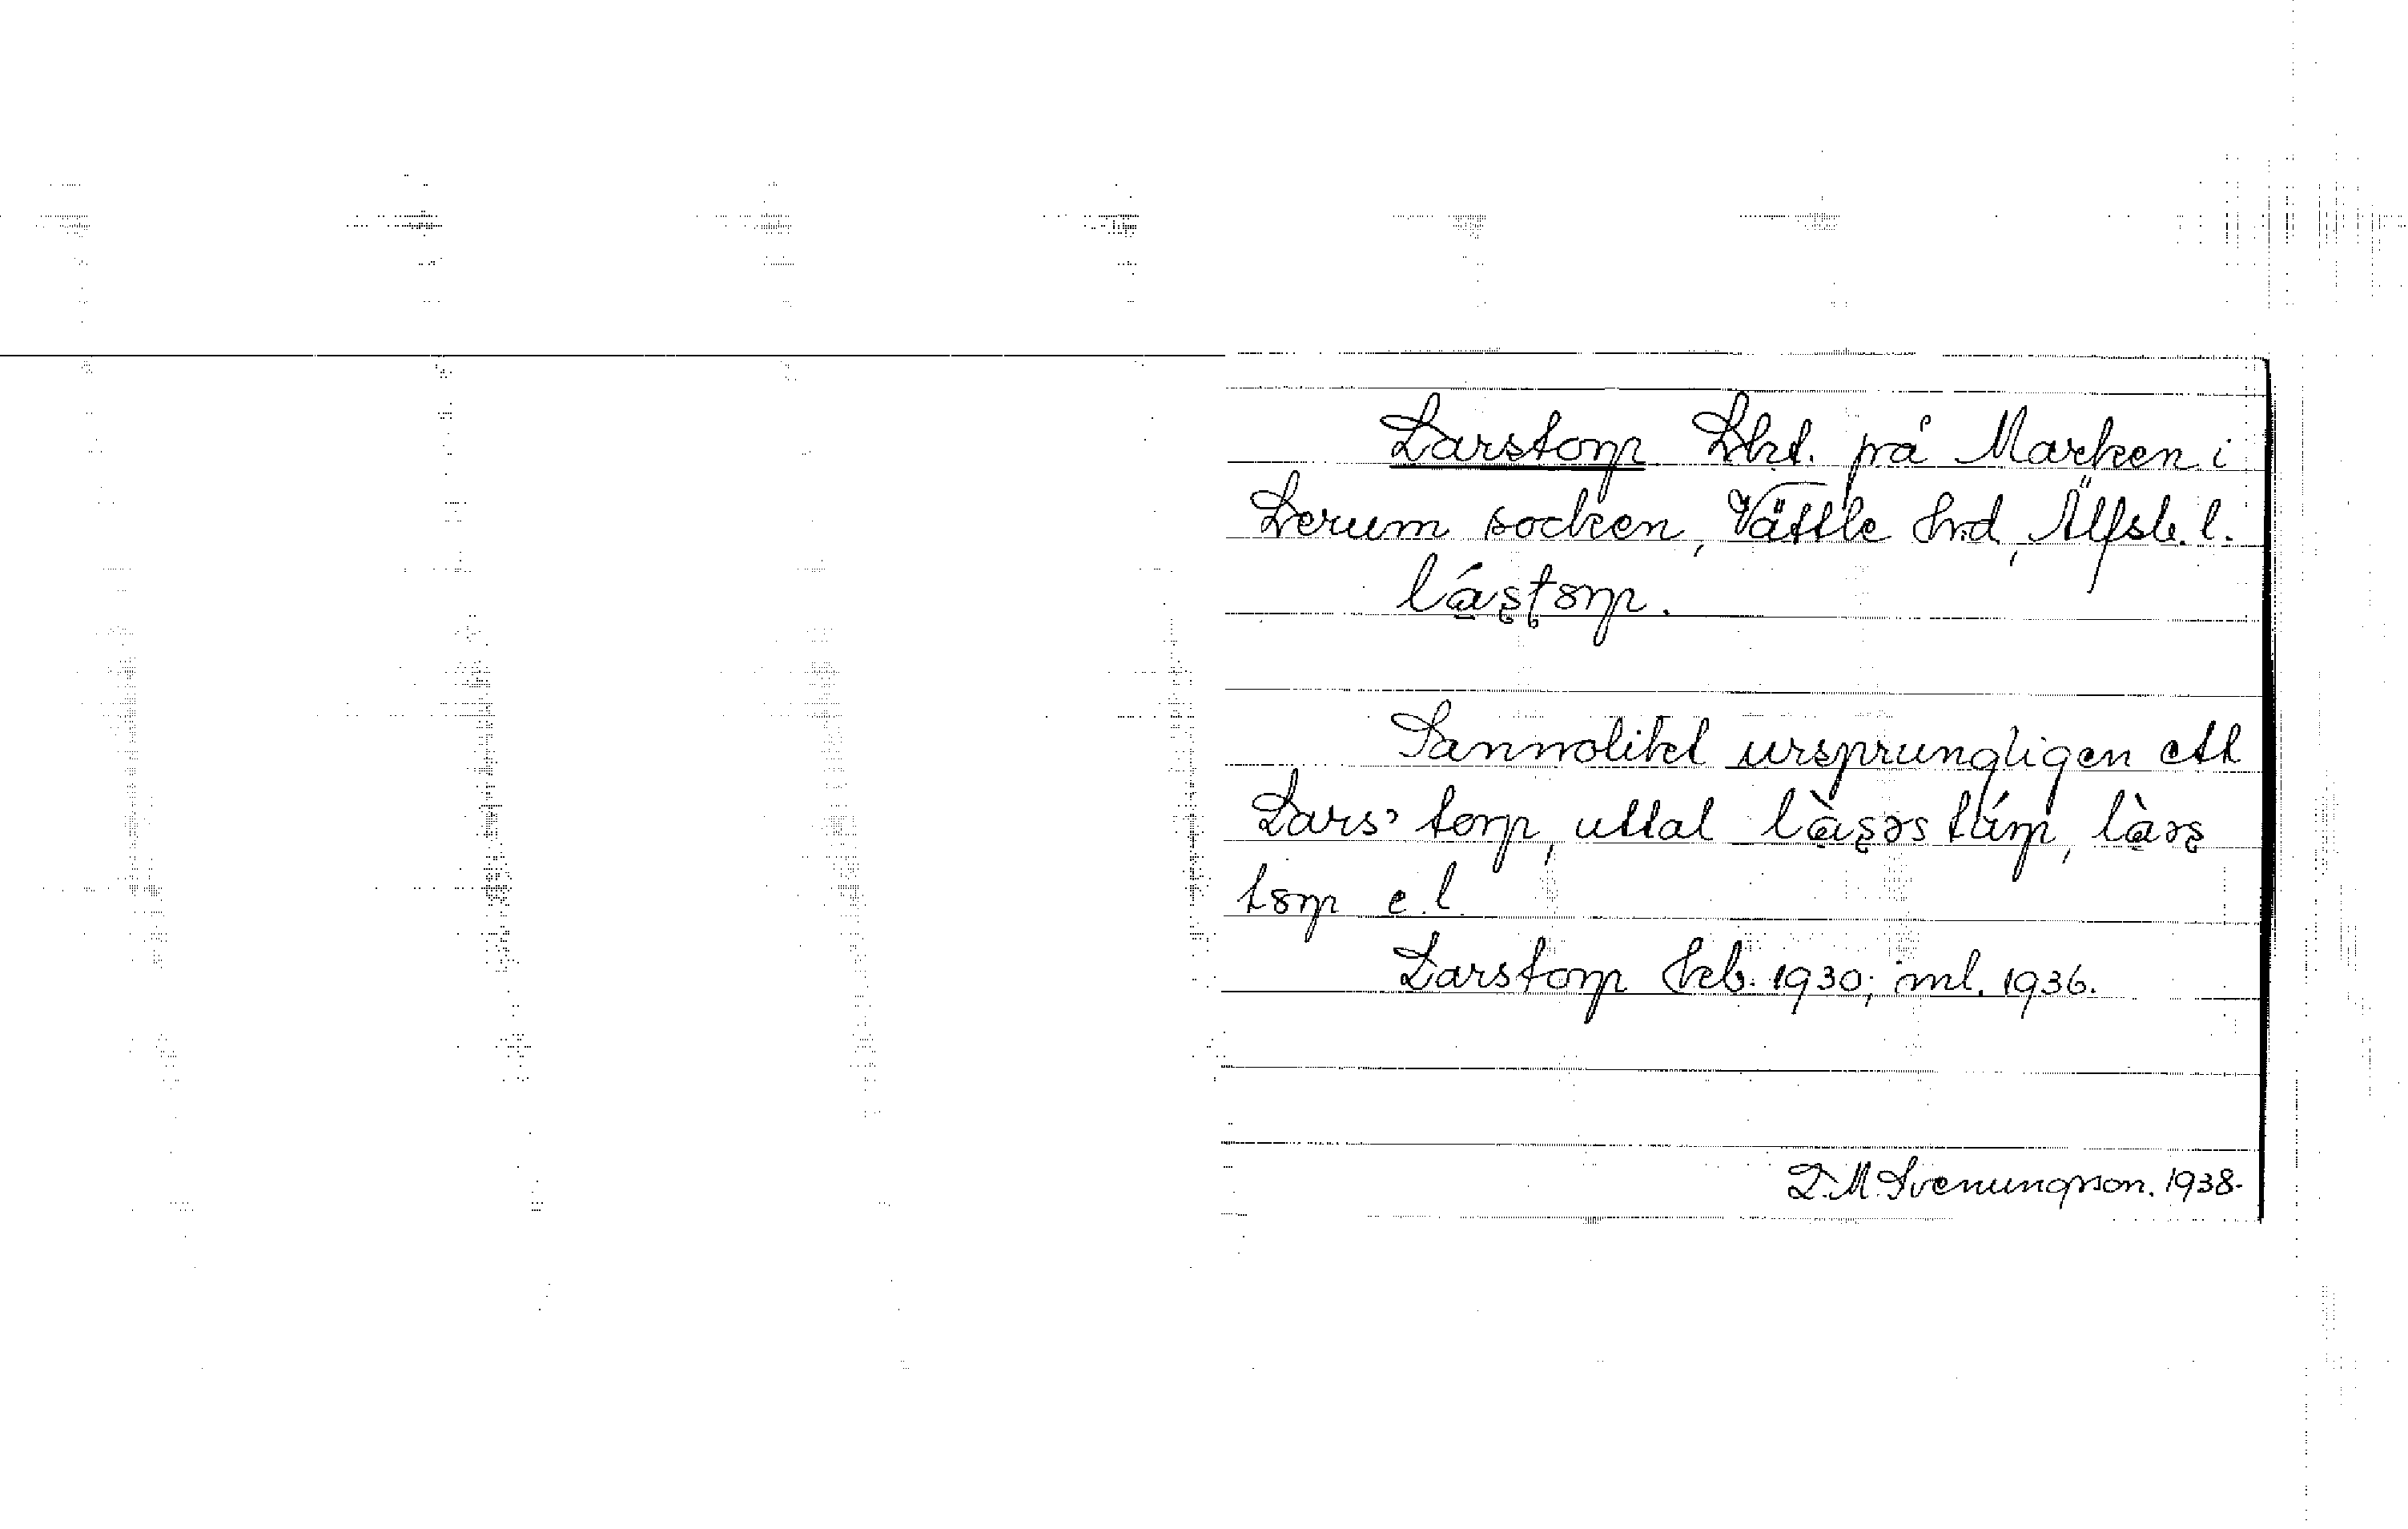 Larstorp Lht. på Marken i
Lerum socken, Vättle hrd, Älfsb. l.
lás̨t̨orp.
Sannolikt ursprungligen ett
Lars' torp, uttal
torp e. l.
Larstorp 1930; ml. 1936.
L. M. Svenungsson. 1938.